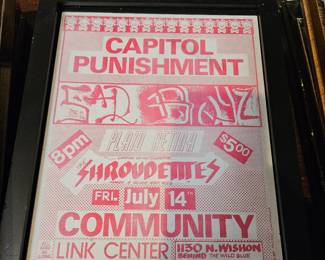 CAPITOL
PUNISHMENT
BAD BOYZ
8pm
$5.00
SHROUDETTES
FRI. July 14TH
COMMUNITY
LINK CENTER
1130 N. WISHON
BEHIND THE WILD BLUE